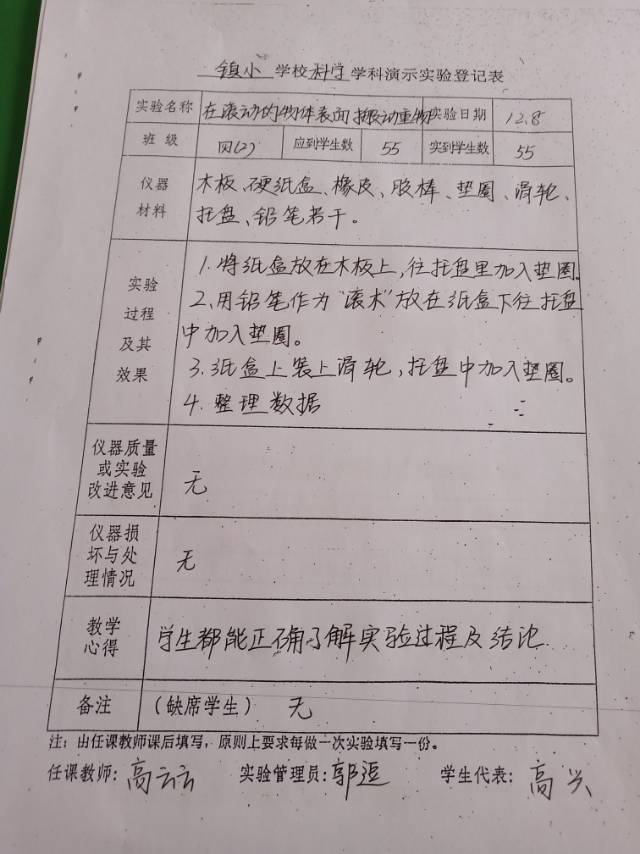 镇小 学校 科学 学科演示实验登记表
实验名称 在滚动的物体表面搬动重物 实验日期 12.8
班 级 四(2) 应到学生数 55 实到学生数 55
仪器 木板、硬纸盒、橡皮、胶棒、垫圈、滑轮、
材料 托盘、铅笔若干。
1.将纸盒放在木板上,往托盘里加入垫圈。
实验 2.用铅笔作为"滚木"放在纸盒下往托盘
过程 中加入垫圈。
及其 3.纸盒上装上滑轮,托盘中加入垫圈。
效果 4.整理数据
仪器质量
或实验
改进意见 无
仪器损
坏与处 无
理情况
教学 学生都能正确了解实验过程及结论
心得
备注 (缺席学生) 无
注:由任课教师课后填写,原则上要求每做一次实验填写一份。
任课教师:高云云 实验管理员:郭逗 学生代表:高兴